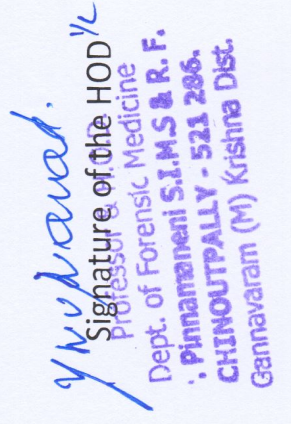 Signature of the HOD
Professor & H.O.D.
Dept. of Forensic Medicine
Pinnamaneni S.I.M.S & R. F.
CHINOUTPALLY - 521 286.
Gannavaram (M) Krishna Dist.